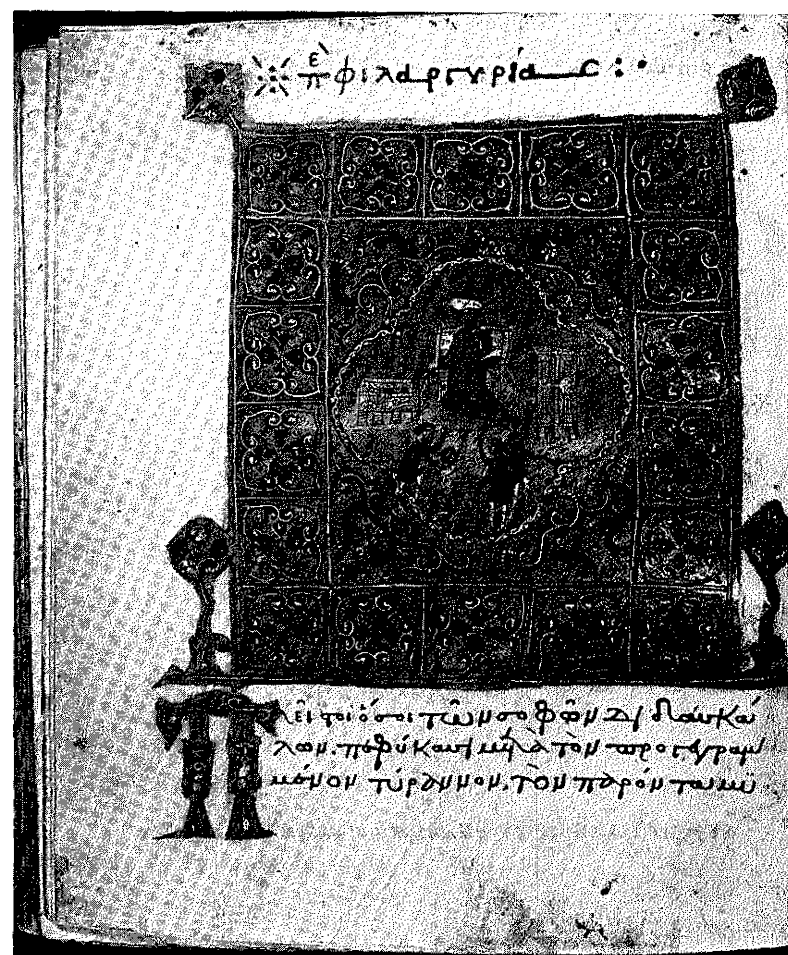 ἐπ φιλαργυρίας :·
Πλεῖστοι ὅσοι τῶν σοφῶν διδασκά
λων. πεφύκασι μετὰ τὸν προγεγραμ
μένον τύραννον, τὸν παρόντα μυ